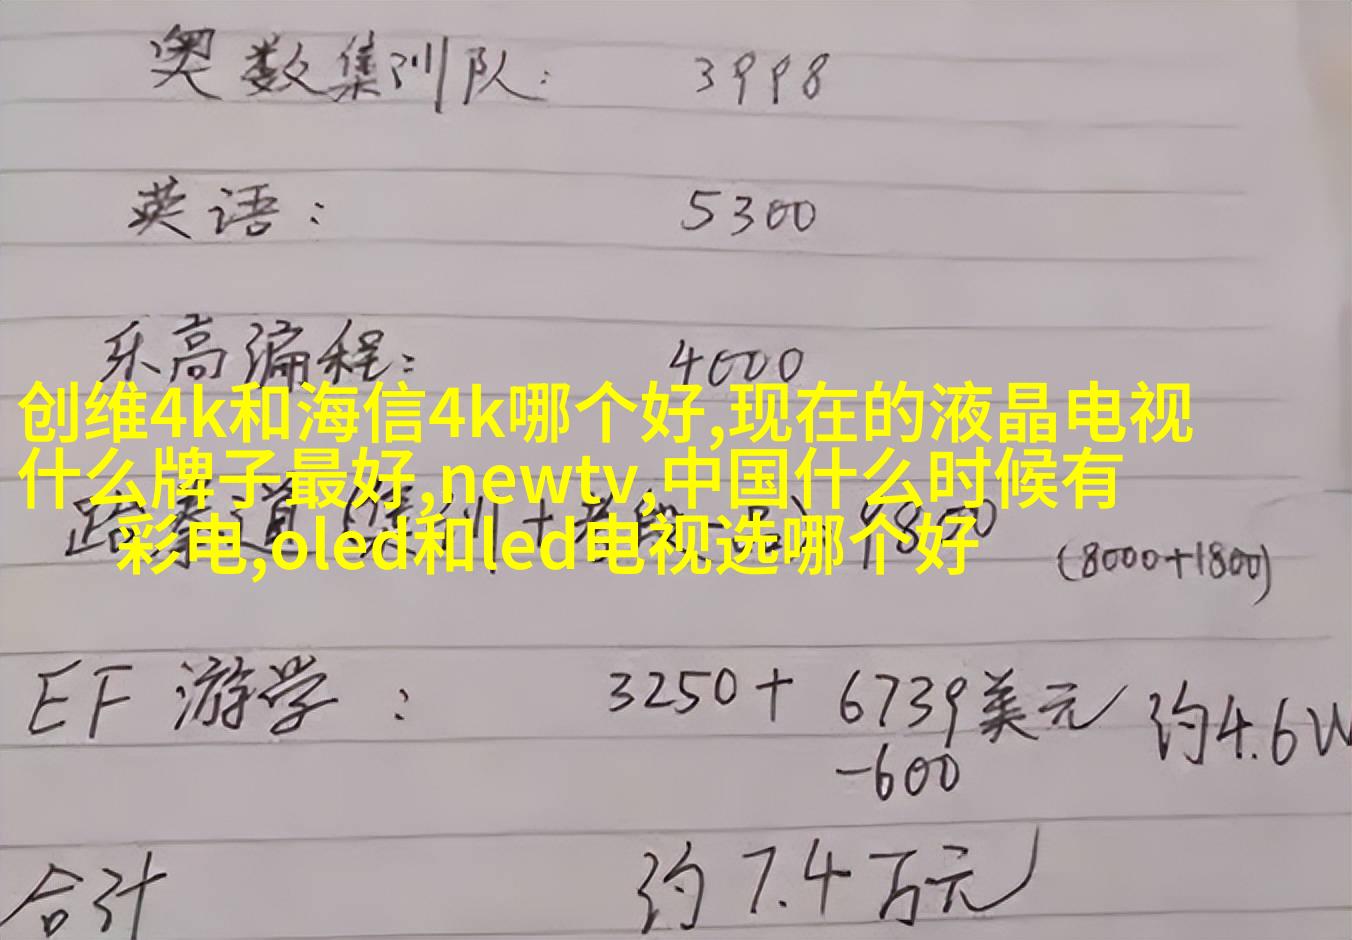 奥数集训队: 3998
英语: 5300
乐高编程: 4000
创维4k和海信4k哪个好,现在的液晶电视
什么牌子最好,newtv,中国什么时候有
彩电,oled和led电视选哪个好
跆拳道(集训+考段一品) 9800 (8000+1800)
EF 游学: 3250+ 6739美元 约4.6W
-600
合计 约7.4万元